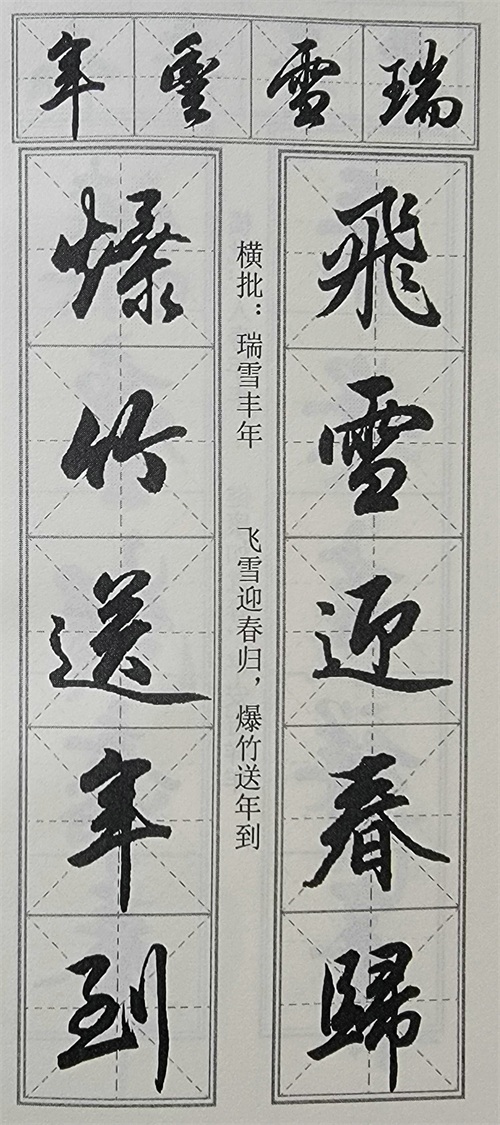 瑞雪豐年
飛雪迎春歸
横批：瑞雪丰年　飞雪迎春归，爆竹送年到
爆竹送年到